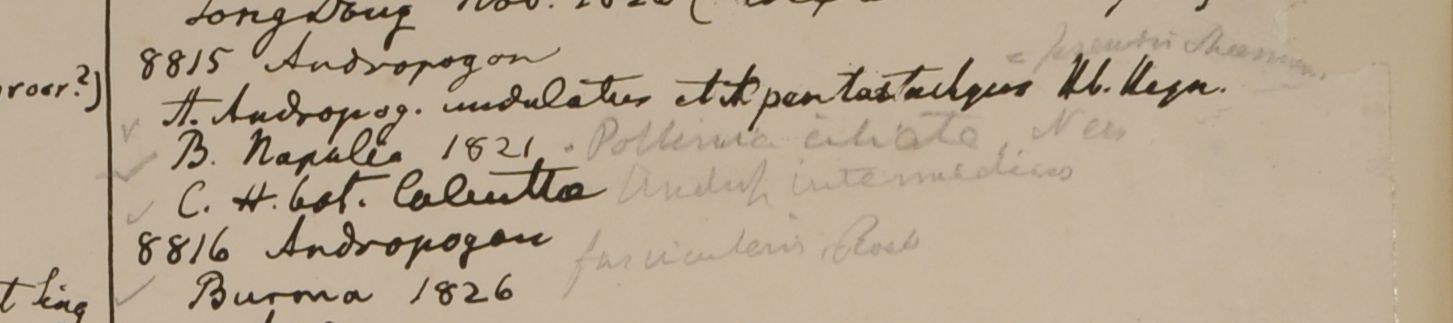 Nov. 182
8815 Andropogon
A. Andropog. undulatus et A pentastachyus Hb. Heyn.
B. Napalia 1821. Pollinia ciliata, Nees
C. H. bot. Calcutta Androp intermedius
8816 Andropogon fascicularis Roxb
Burma 1826